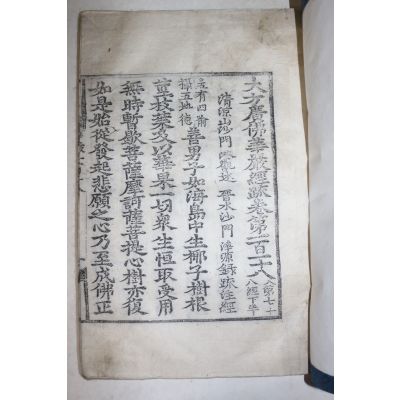 大方廣佛華嚴經䟽卷第一百一十八 經第七十八經下半
清涼山沙門澄觀述 晉水沙門淨源錄䟽注經
五有四喻
攝五地徳 善男子如海島中生椰子樹根
莖枝葉及以華果一切衆生恒取受用
無時暫歇菩薩摩訶薩菩提心樹亦復
如是始從發起悲願之心乃至成佛正